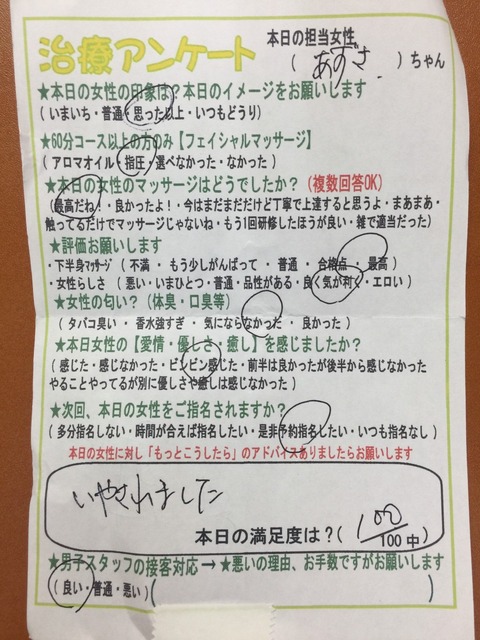 本日の担当女性
治療アンケート
( あずさ )ちゃん
★本日の女性の印象は?本日のイメージをお願いします
(いまいち・普通・思った以上・いつもどうり)
★60分コース以上の方のみ【フェイシャルマッサージ】
(アロマオイル・指圧・選べなかった・なかった)
★本日の女性のマッサージはどうでしたか?(複数回答OK)
(最高だね!・良かったよ!・今はまだまだだけど丁寧で上達すると思うよ・まあまあ・
触ってるだけでマッサージじゃないね・もう1回研修したほうが良い・雑で適当だった)
★評価お願いします
・下半身マッサージ(不満・もう少しがんばって・普通・合格点・最高)
・女性らしさ(悪い・いまひとつ・普通・品性がある・良く気が利く・エロい)
★女性の匂い?(体臭・口臭等)
(タバコ臭い・香水強すぎ・気にならなかった・良かった)
★本日女性の【愛情・優しさ・癒し】を感じましたか?
(感じた・感じなかった・ビンビン感じた・前半は良かったが後半から感じなかった
やることやってるが別に優しさや癒しは感じなかった)
★次回、本日の女性をご指名されますか?
(多分指名しない・時間が合えば指名したい・是非予約指名したい・いつも指名なし)
本日の女性に対し「もっとこうしたら」のアドバイスありましたらお願いします
いやされました
本日の満足度は?(100/100中)
★男子スタッフの接客対応→★悪いの理由、お手数ですがお願いします
(良い・普通・悪い)( )